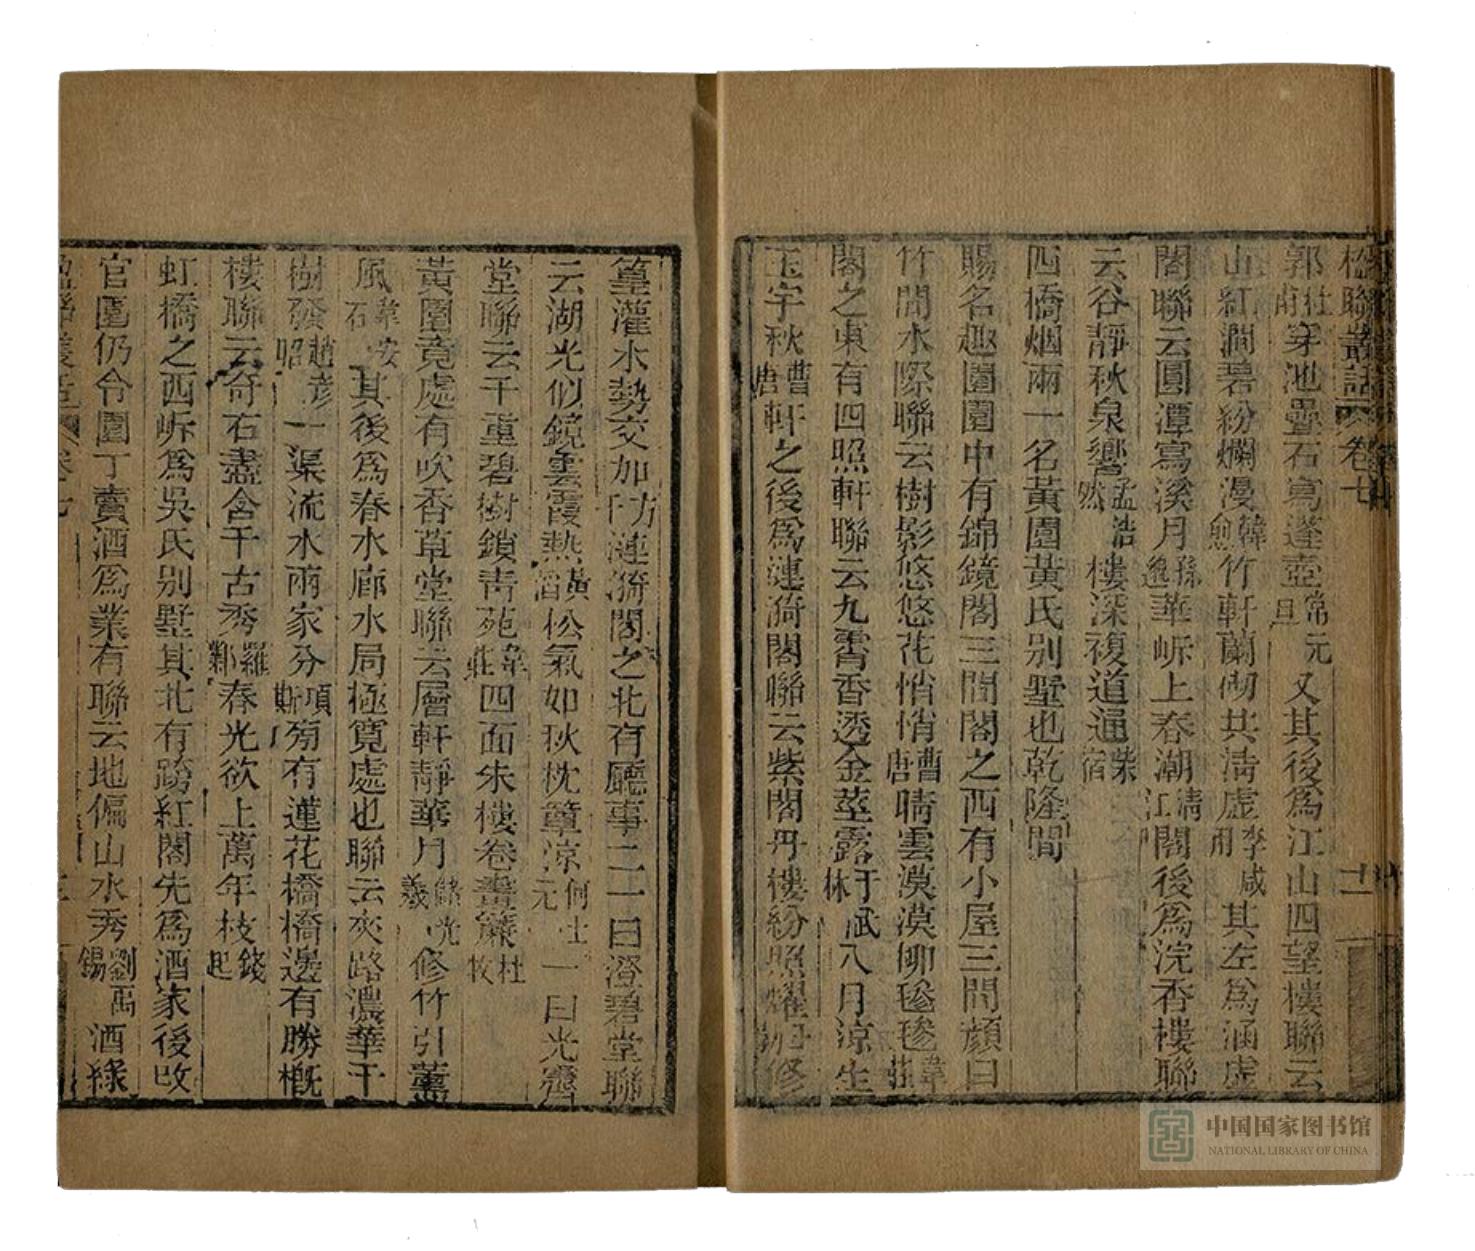 楹聯叢話 卷七 十二
郭杜甫穿池疊石寫蓬壺常元旦又其後爲江山四望樓聯云
山紅澗碧紛爛漫韓愈竹軒蘭砌共淸虛李咸用其左爲涵虛
閣聯云圓潭寫溪月孫逖華岍上春潮淸江閣後爲浣香樓聯
云谷靜秋泉響孟浩然樓深複道通柴宿
四橋烟雨一名黃園黃氏別墅也乾隆間
賜名趣園園中有錦鏡閣三間閣之西有小屋三間顏曰
竹間水際聯云樹影悠悠花悄悄曹唐晴雲漠漠柳毿毿韋莊
閣之東有四照軒聯云九霄香透金莖露于武林八月涼生
玉宇秋曹唐軒之後爲漣漪閣聯云紫閣丹樓紛照耀修
篁灌木勢交加方干漣漪閣之北有廳事二一曰澄碧堂聯
云湖光似鏡雲霞熱黃滔松氣如秋枕簟涼何士元一曰光霽
堂聯云千重碧樹鎖靑苑韋莊四面朱樓卷畫簾杜牧
黃園竟處有吹香草堂聯云層軒靜華月儲光羲修竹引薰
風韋安石其後爲春水廊水局極寬處也聯云夾路濃華千
樹發趙彥昭一渠流水兩家分項斯旁有蓮花橋橋邊有勝槪
樓聯云奇石盡含千古秀羅鄴春光欲上萬年枝錢起
虹橋之西岍爲吳氏別墅其北有跨紅閣先爲酒家後改
官園仍令園丁賣酒爲業有聯云地偏山水秀劉禹錫酒綠
楹聯叢話 卷七
中国国家图书馆
NATIONAL LIBRARY OF CHINA